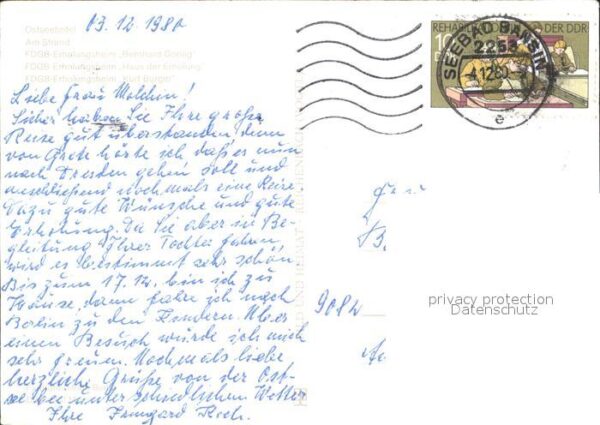 03.12.1980
Ostseebad
Am Strand
FDGB-Erholungsheim „Bernhard Göring"
FDGB-Erholungsheim „Haus der Erholung"
FDGB-Erholungsheim „Kurt Bürger"
Liebe Frau Molchin!
Sicher haben Sie Ihre große
Reise gut überstanden, denn
von Grete hörte ich, daß es nun
nach Dresden gehen soll und
anschließend nochmals eine Reise.
Dazu gute Wünsche und gute
Erholung. Da Sie aber in Be-
gleitung Ihrer Tochter fahren,
wird es bestimmt sehr schön.
Bis zum 17.12. bin ich zu
Hause, dann fahre ich nach
Berlin zu den Kindern. Über
einen Besuch würde ich mich
sehr freuen. Nochmals liebe
herzliche Grüße von der Ost-
see bei unterschiedlichem Wetter
Ihre Irmgard
REHABILITATION DER DDR
10
SEEBAD BANSIN
2253
-4.12.80
e
Frau
B
9082
privacy protection
Datenschutz